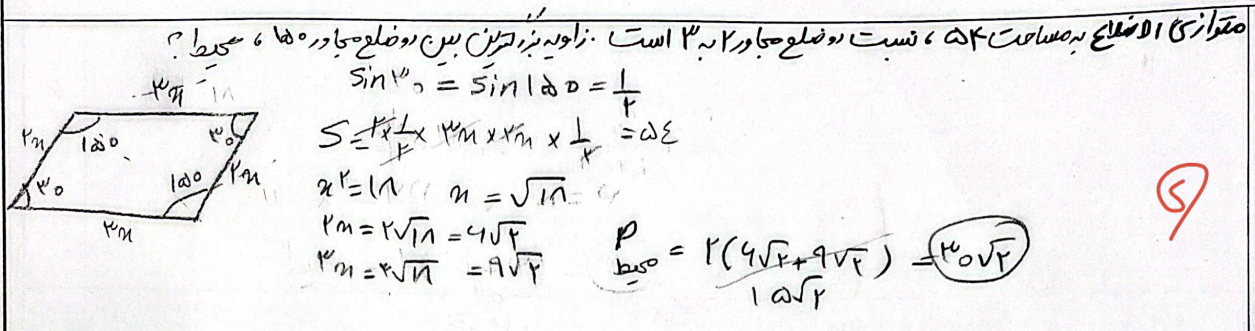 متوازی الاضلاع به مساحت ۵۴ ، نسبت دو ضلع مجاور ۲ به ۳ است . زاویه بزرگترین بین دو ضلع مجاور ۱۵۰ ، محیط ؟
Sin ۳۰ = Sin ۱۵۰ = ۱/۲
S = ۲ × ۱/۲ × ۳x × ۲x × ۱/۲ = ۵۴
x² = ۱۸ x = √۱۸
۲x = ۲√۱۸ = ۶√۲
۳x = ۳√۱۸ = ۹√۲
P محیط = ۲(۶√۲ + ۹√۲) = ۳۰√۲
۱۵√۲
۳x
۲x ۱۵۰ ۳۰
۳۰ ۱۵۰ ۲x
۳x